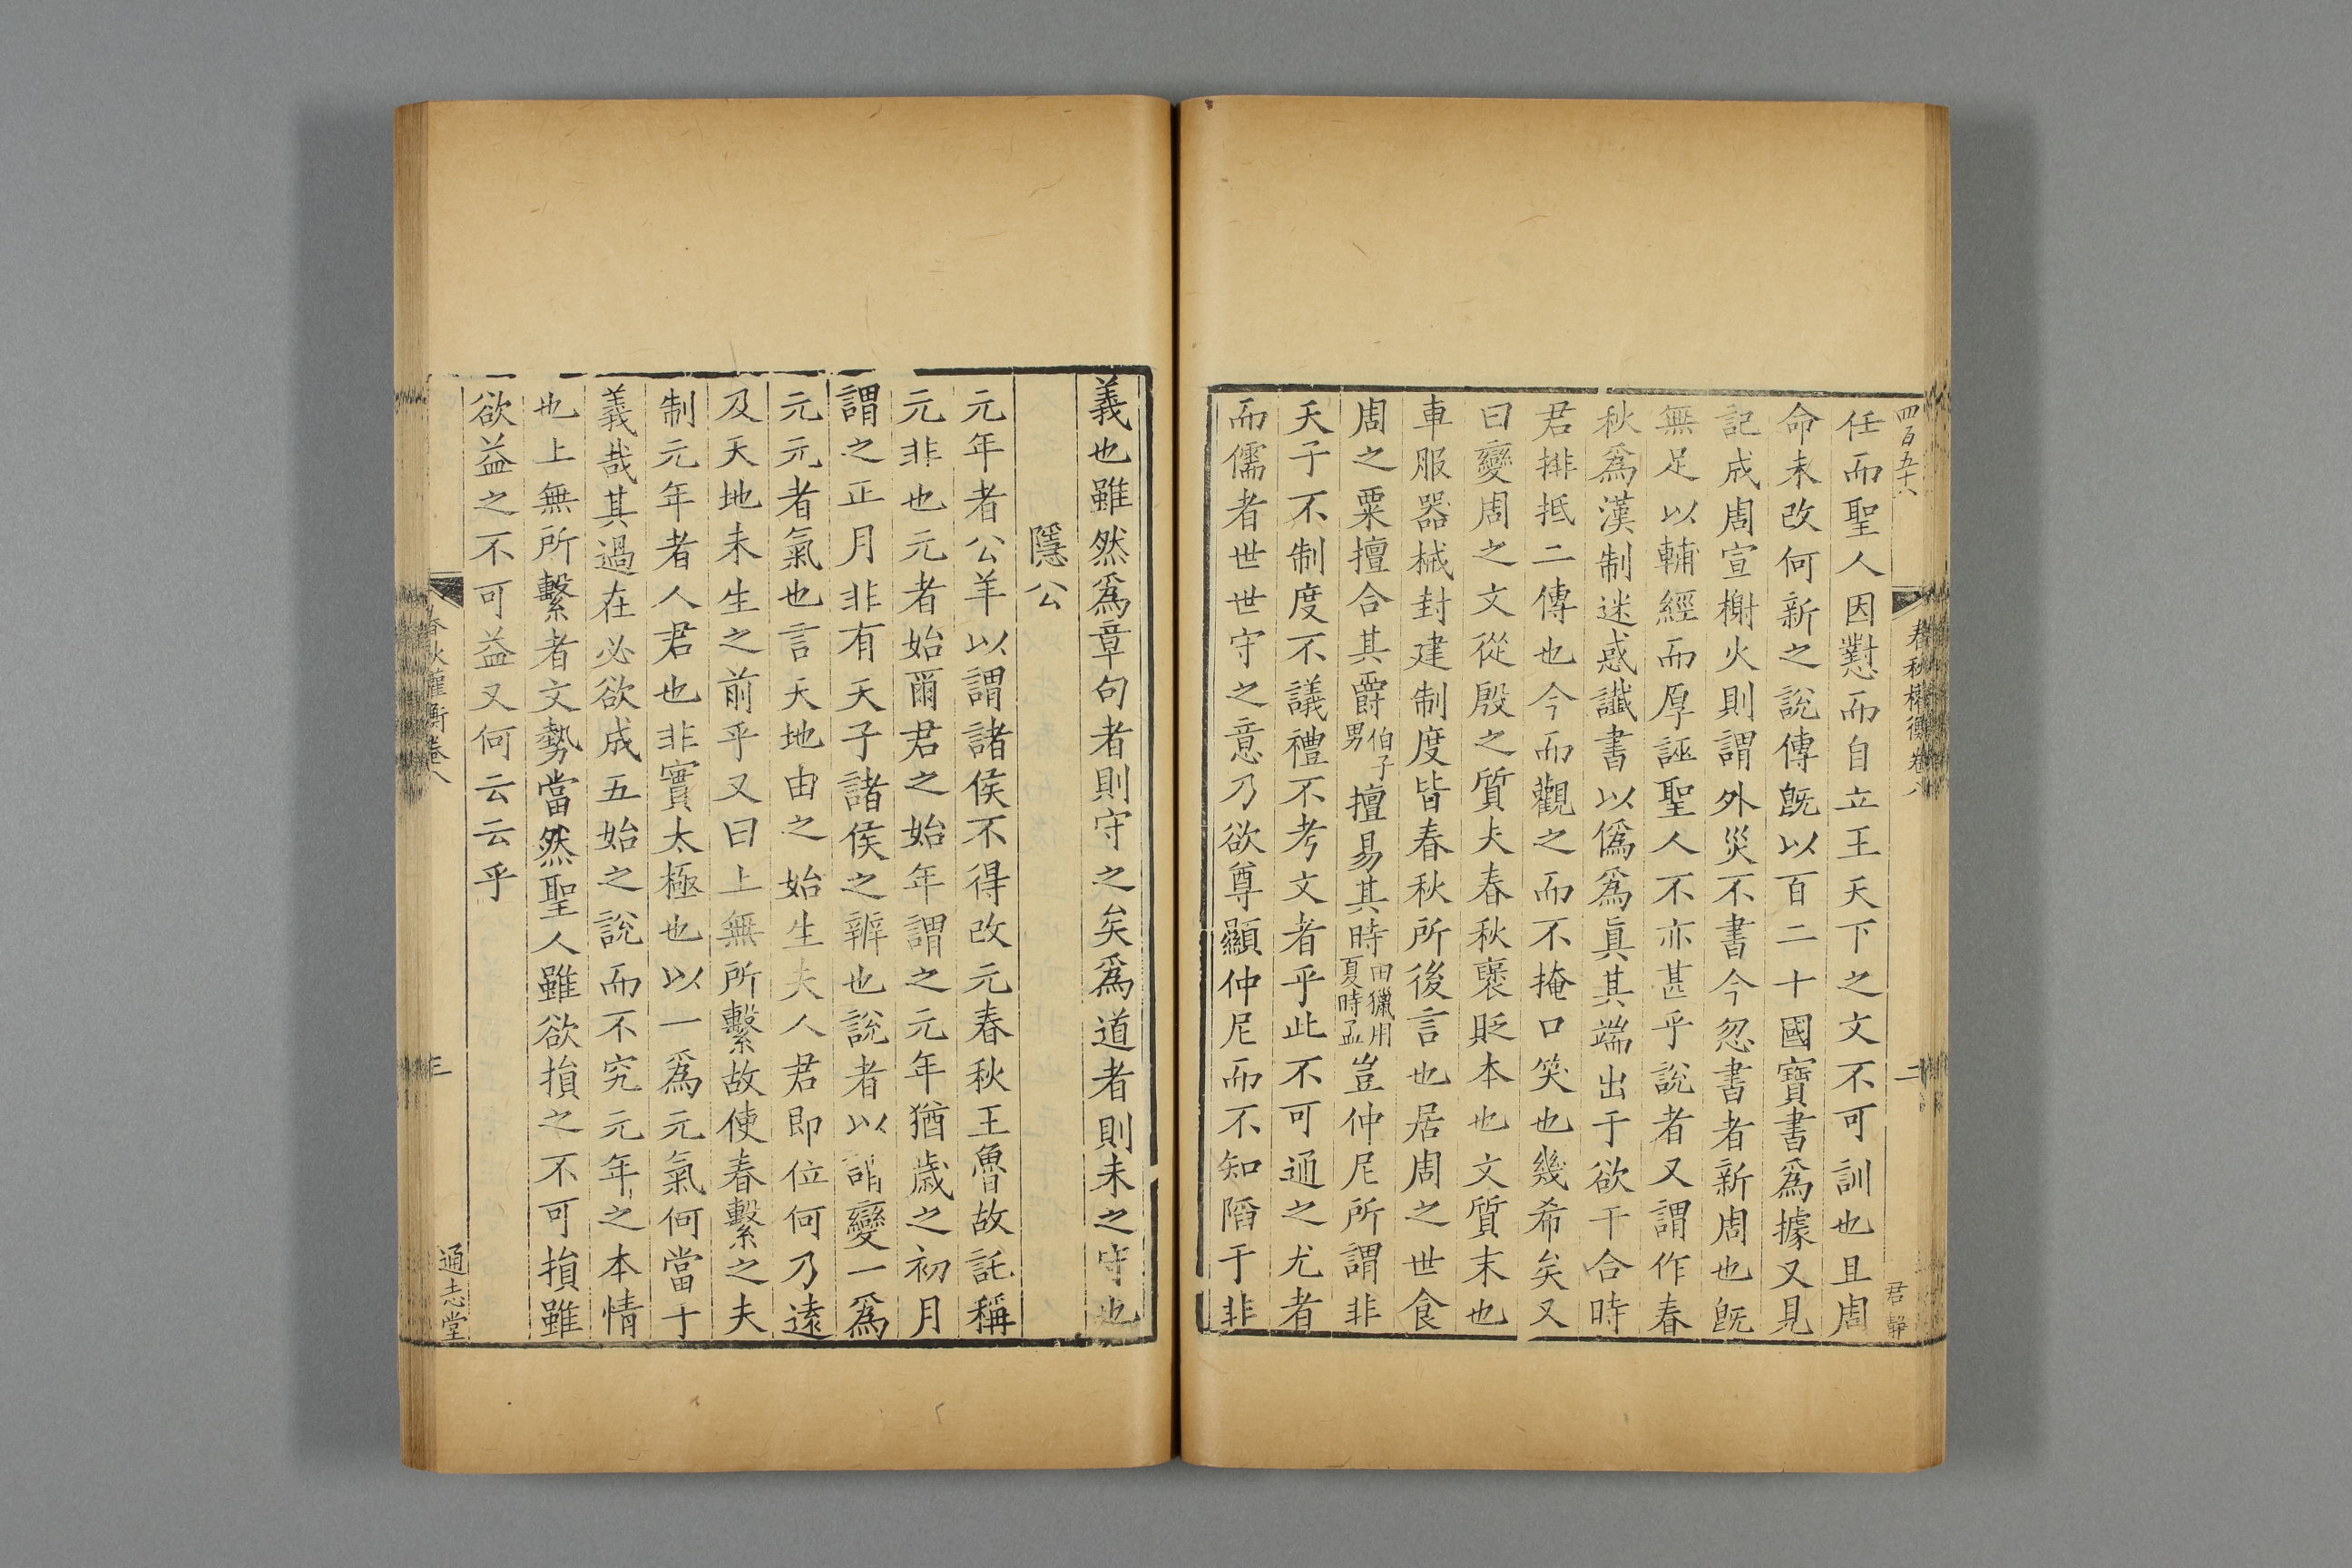 四百五十六
春秋權衡卷八
二
君靜
任而聖人因懟而自立王天下之文不可訓也且周
命未改何新之說傳旣以百二十國寶書爲據又見
記成周宣榭火則謂外災不書今忽書者新周也旣
無足以輔經而厚誣聖人不亦甚乎說者又謂作春
秋爲漢制迷惑讖書以僞爲眞其端出于欲干合時
君排抵二傳也今而觀之而不掩口笑也幾希矣又
曰變周之文從殷之質夫春秋襃貶本也文質末也
車服器械封建制度皆春秋所後言也居周之世食
周之粟擅合其爵伯子男擅易其時田獵用夏時孟豈仲尼所謂非
天子不制度不議禮不考文者乎此不可通之尤者
而儒者世世守之意乃欲尊顯仲尼而不知陷于非
義也雖然爲章句者則守之矣爲道者則未之守也
隱公
元年者公羊以謂諸侯不得改元春秋王魯故託稱
元非也元者始爾君之始年謂之元年猶歲之初月
謂之正月非有天子諸侯之辨也說者以謂變一爲
元元者氣也言天地由之始生夫人君即位何乃遠
及天地未生之前乎又曰上無所繫故使春繫之夫
制元年者人君也非實太極也以一爲元氣何當于
義哉其過在必欲成五始之說而不究元年之本情
也上無所繫者文勢當然聖人雖欲損之不可損雖
欲益之不可益又何云云乎
春秋權衡卷八
三
通志堂